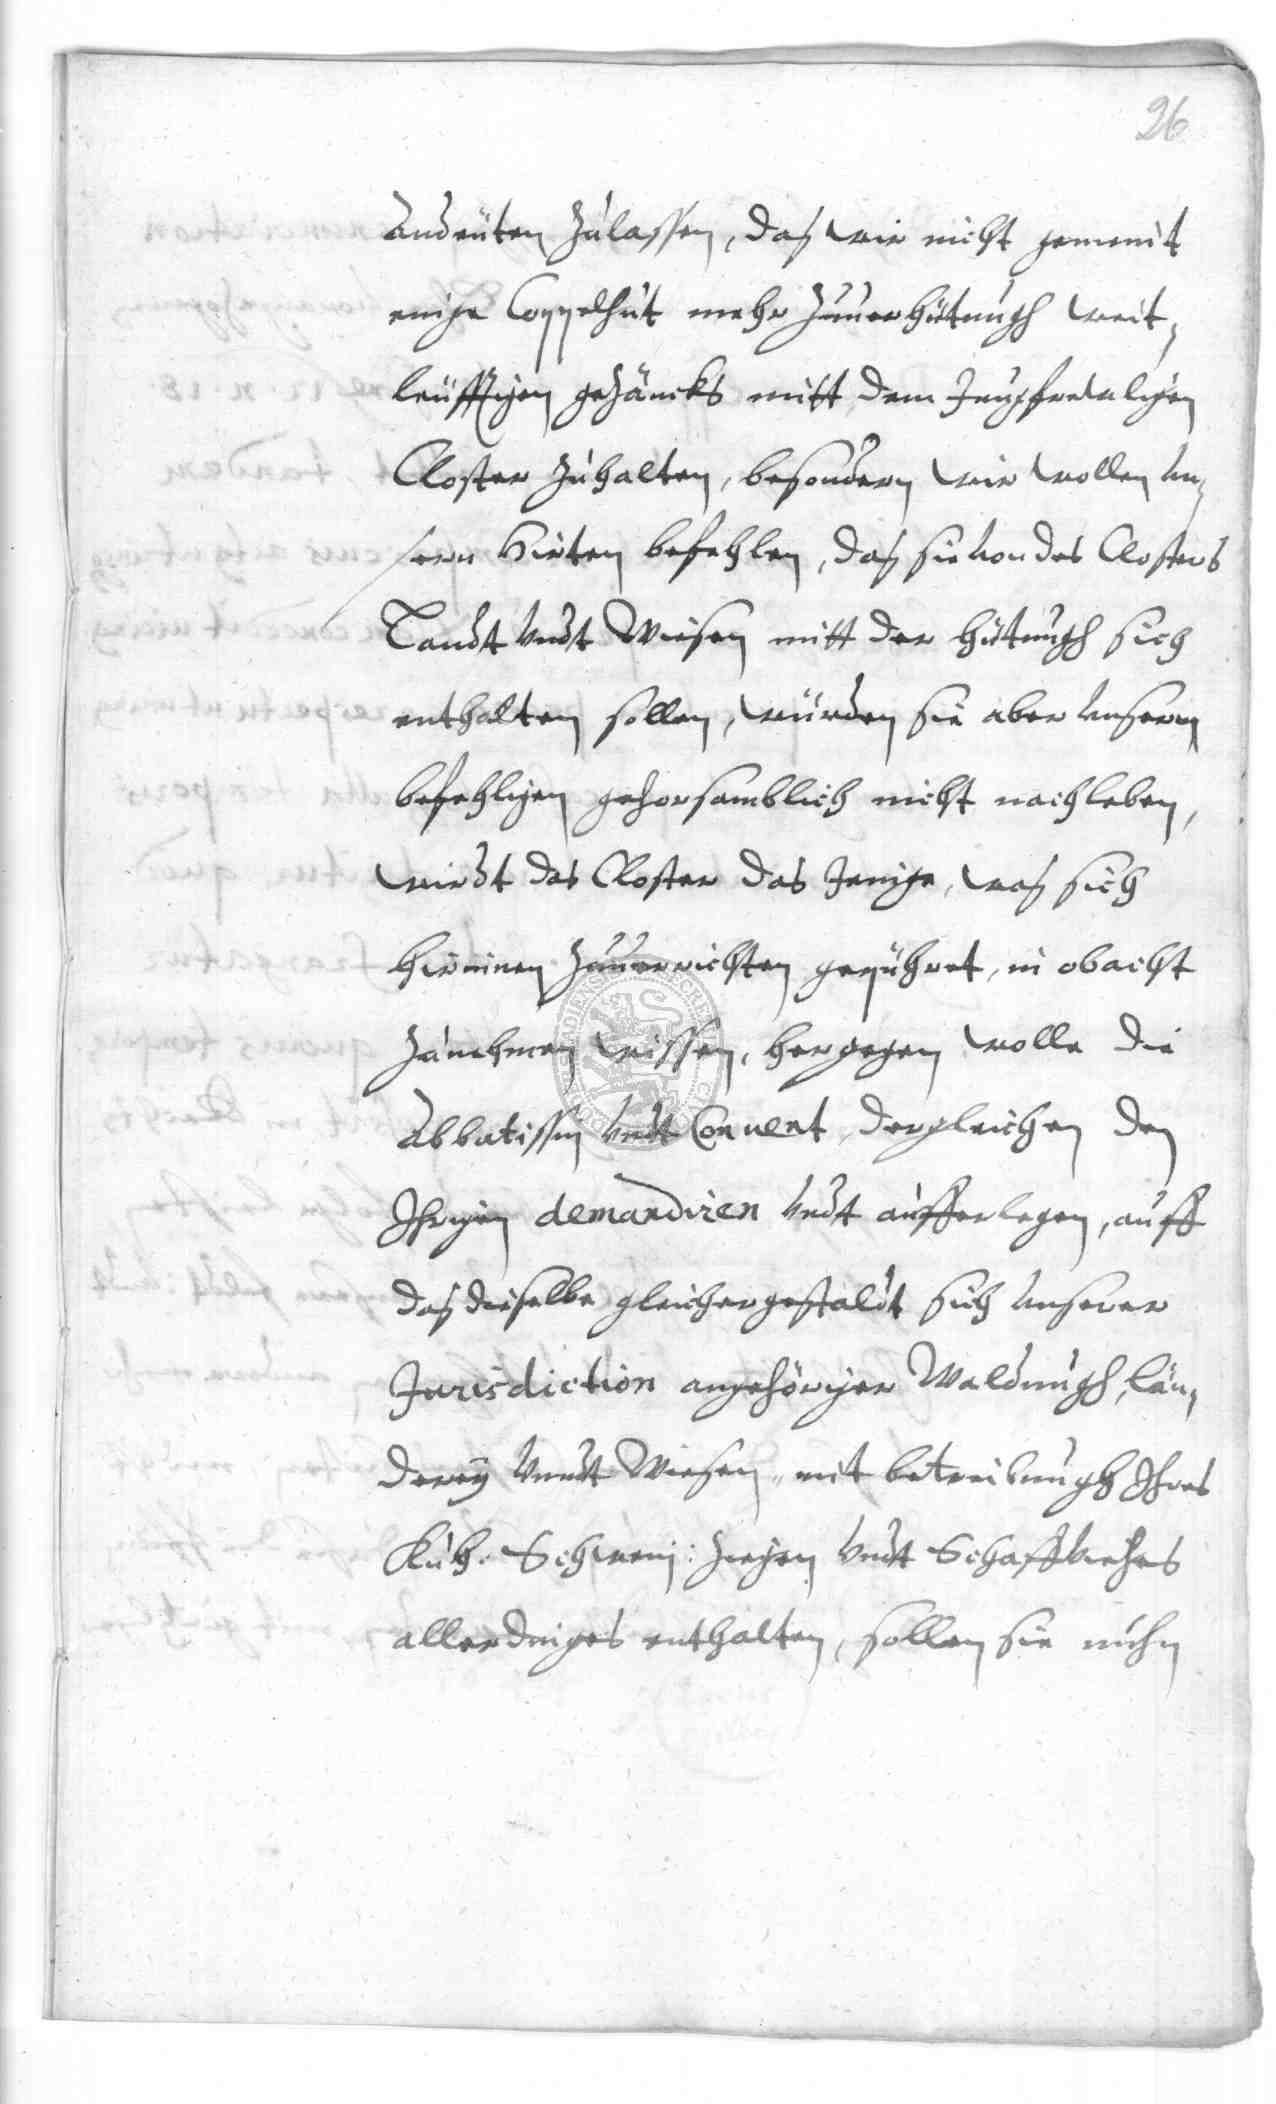 26
andeüten zulassen, daß wir nicht gemeint
einige Coppelhut mehr zuuerhütungh weit,
leüfftigen gezäncks mitt dem Jungfrewligen
Closter zuhalten, besondern wir wollen un,
sern Hirten befehlen, daß sie von des Closters
Landt vndt Wiesen mitt der hütungh sich
enthalten sollen, würden sie aber unserm
befehligen gehorsamblich nicht nachleben,
wirdt das Closter das Jenige, waß sich
hirinnen zuuerrichten gepühret, in obacht
zunehmen wissen, hergegen wolle die
Abbatissin vndt Conuent, dergleichen den
Ihrigen demandiren vndt aufferlegen, auff
daß dieselbe gleichergestaldt sich unserer
Jurisdiction angehöriger Waldungh, län,
derey vnndt Wiesen, mit betreibungh Ihres
Kuh: Schwein: Ziegen vndt Schaffviehes
allerdinges enthalten, sollen sie nuhn